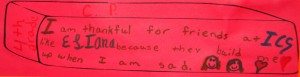 C.P
4th grade
I am thankful for friends at ICS
like E & I and because they build me
up when I am sad.